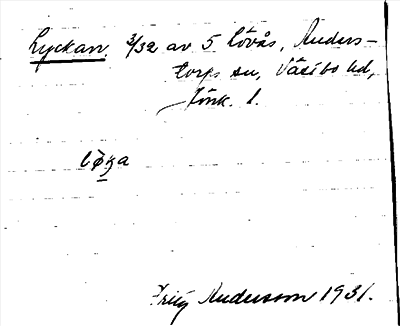 Lyckan, 3/32 av 5 Lövås, Anders-
torps sn, Västbo hd,
Jönk. l.
Fritz Andersson 1931.